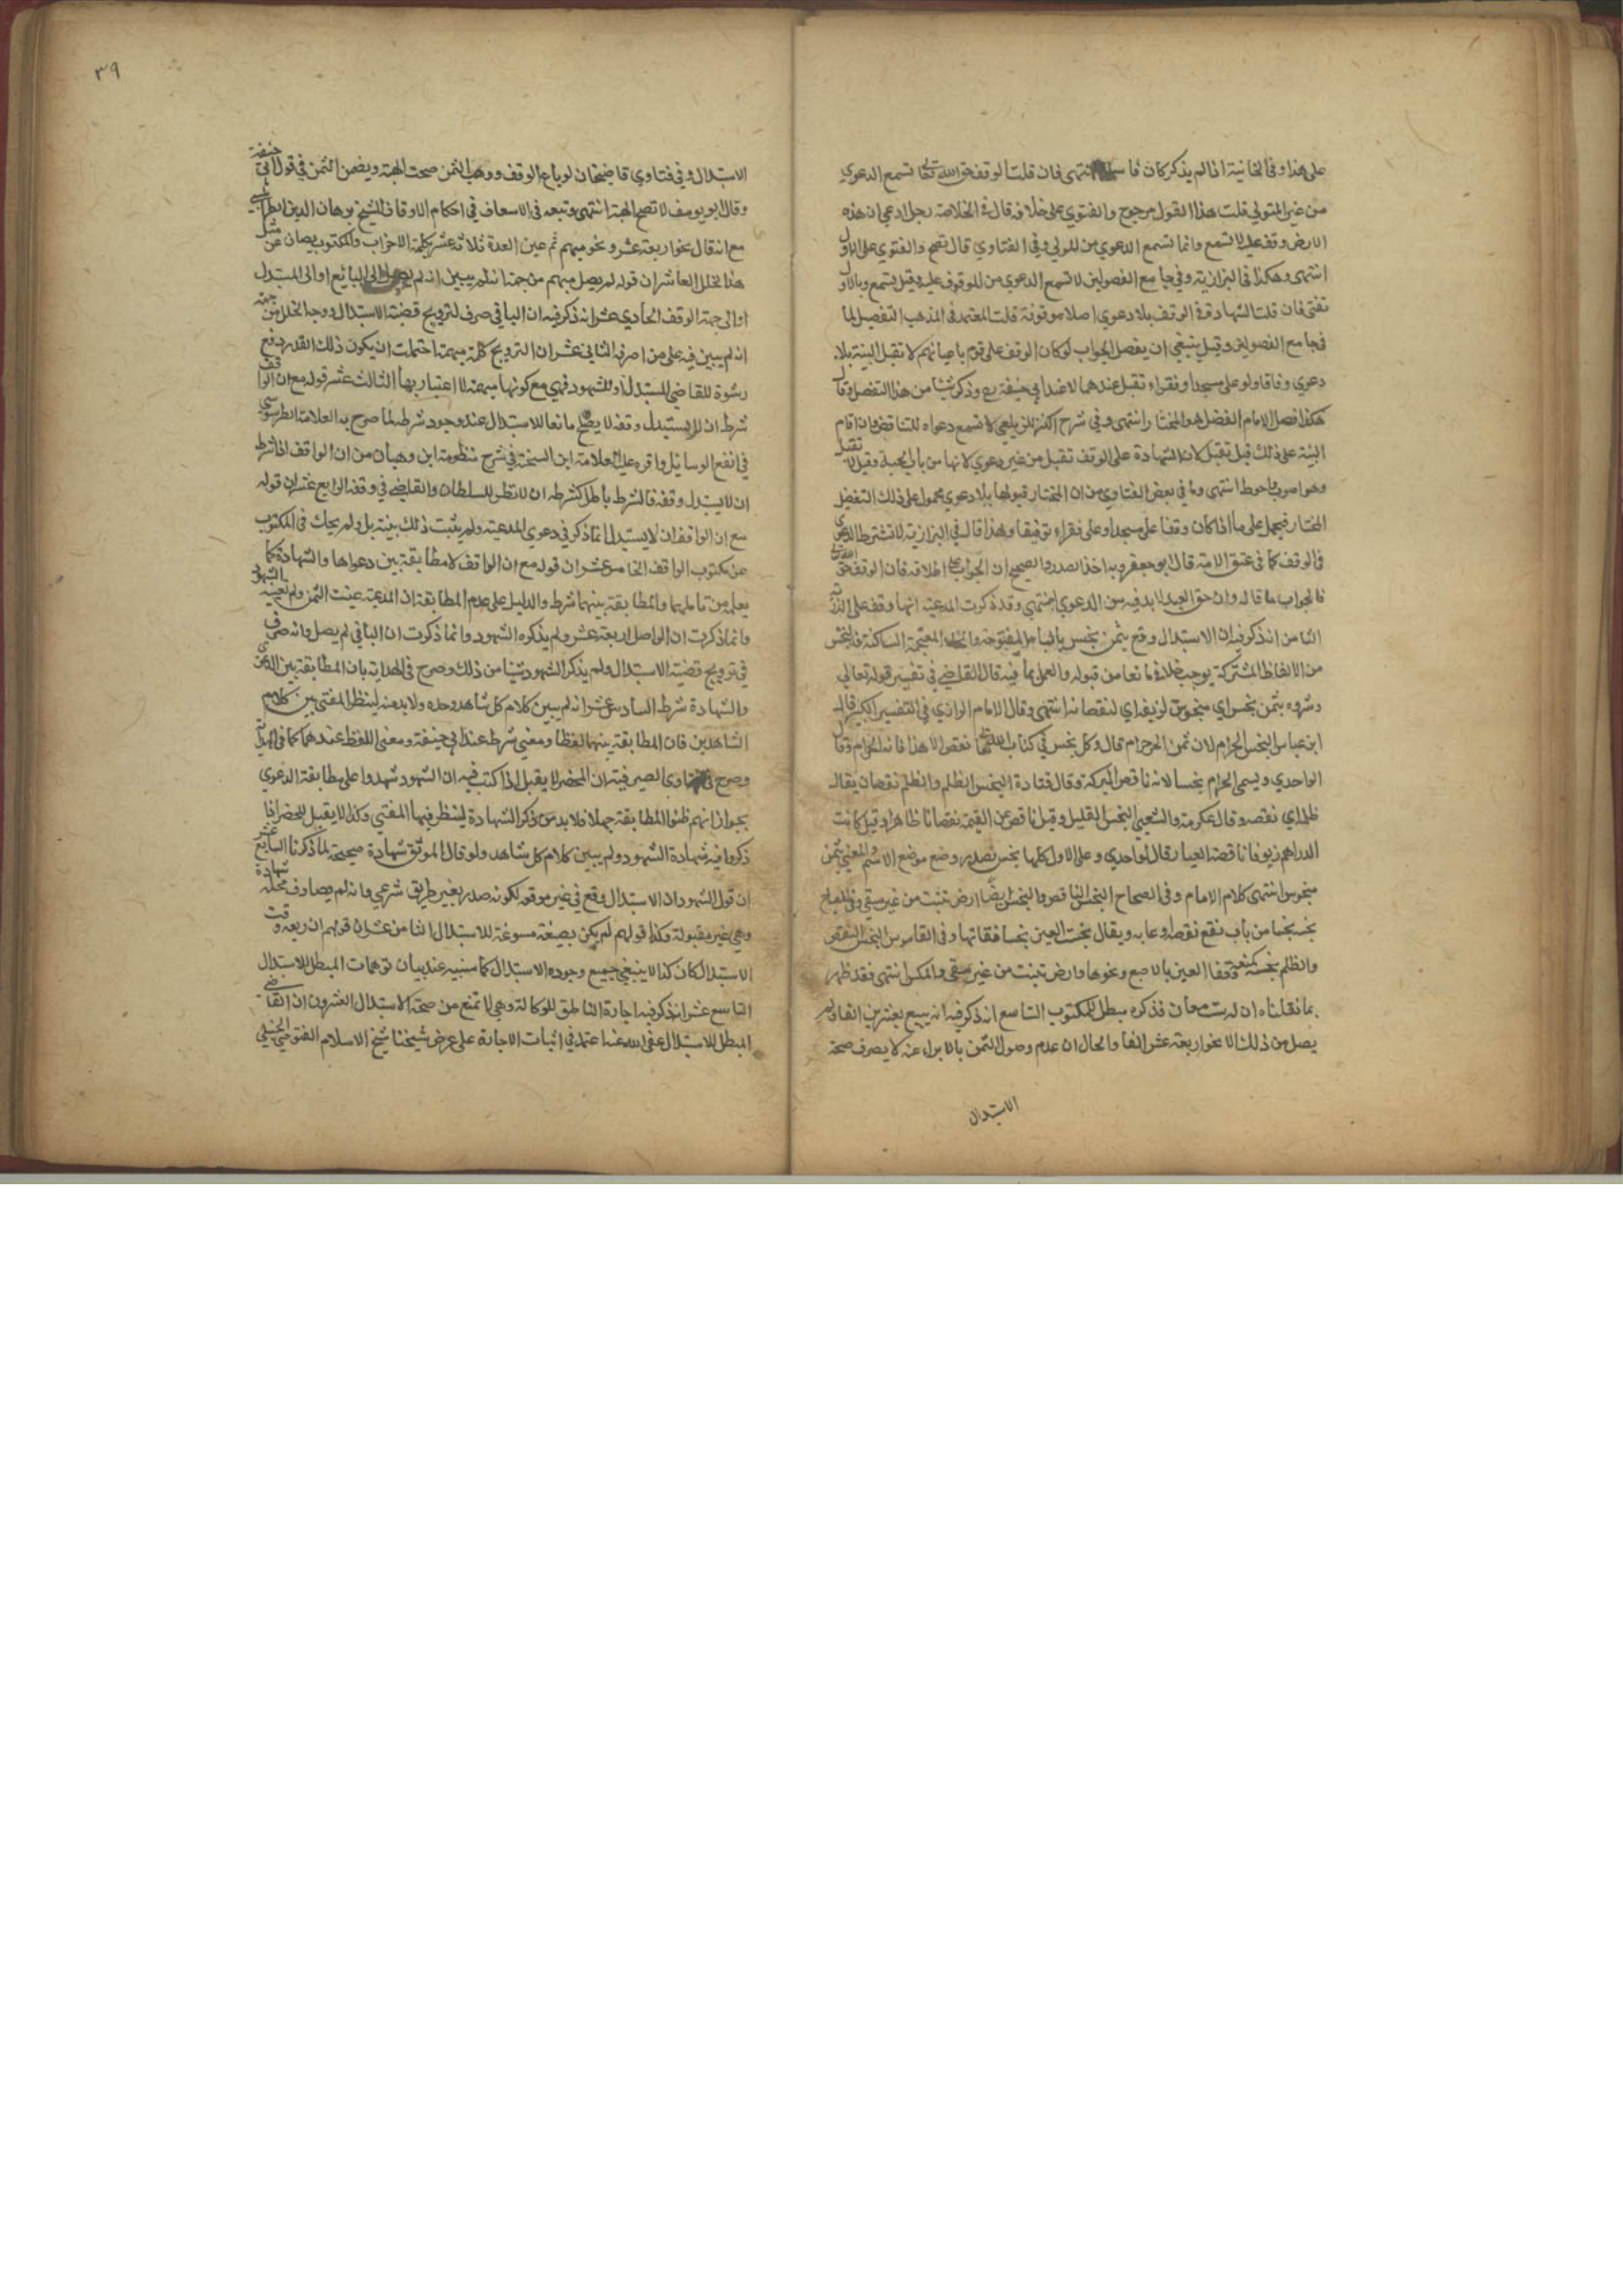 على هذا وفي الخانية اذا لم يذكر كان فاسدا انتهى فان قلت الوقف حق الله تعالى تسمع الدعوي
من غير المتولي قلت هذا القول مرجوح والفتوي على خلافه قال في الخلاصة رجل ادعي ان هذه
الارض وقف عليه لا تسمع وانما تسمع الدعوي من المتولي وفي الفتاوي قال تصح والفتوي على الاول
انتهى وهكذا في البزازية وفي جامع الفصولين لا تسمع الدعوي من الموقوف عليه وقيل تسمع وبالاول
تفتى فان قلت الشهادة في الوقف بلا دعوي اصلا موقوفة قلت المعتمد في المذهب التفصيل لما
في جامع الفصولين وقيل ينبغي ان يفصل الجواب لو كان الوقف على قوم باعيانهم لا تقبل البينة بلا
دعوي وفاقا ولو على مسجد او فقراء تقبل عندهما لا عند ابي حنيفة رح وذكر شيئا من هذا التفصيل وقال
هكذا فصل الامام الفضلي وهو المختار انتهى وفي شرح الكنز للزيلعي لا تسمع دعواه للتناقض فان اقام
البينة على ذلك قيل تقبل لان الشهادة على الوقف تقبل من غير دعوي لانها من باب الحسبة وقيل لا تقبل
وهو اصوب واحوط انتهى وما في بعض الفتاوي من ان المختار قبولها بلا دعوي محمول على ذلك التفصيل
المختار فيحمل على ما اذا كان وقفا على مسجد او على فقراء توفيقا وبهذا قال في البزازية لا تشترط الدعوي
في الوقف كما في عتق الامة قال ابو جعفر وبه اخذ الصدر والصحيح ان الجواب على اطلاقه فان الوقف حق الله تعالى
فالجواب ما قاله وان حق العبد لا بد فيه من الدعوي انتهى وقد ذكرت المدعية انها وقف على الذرية
الثامن انه ذكر فيه ان الاستبدال وقع بثمن بخس بالباء المفتوحة والخاء المعجمة الساكنة فالبخس
من الالفاظ المشتركة يوجب خللا مانعا من قبوله والعمل بما فيه قال القاضي في تفسير قوله تعالى
وشروه بثمن بخس اي مبخوس لزيفه او لنقصانه انتهى وقال الامام الرازي في التفسير الكبير قال
ابن عباس البخس الحرام لان ثمن الحر حرام قال وكل بخس في كتاب الله تعالى نقص الا هذا فانه الحرام وقال
الواحدي ويسمى الحرام بخسا لانه ناقص البركة وقال قتادة البخس الظلم والظلم نقصان يقال
ظلمه اي نقصه وقال عكرمة والشعبي البخس القليل وقيل ناقص عن القيمة نقصانا ظاهرا وقيل كانت
الدراهم زيوفا ناقصة العيار قال الواحدي وعلى الاول كلها بخس مصدر وضع موضع الاسم والمعنى بثمن
مبخوس انتهى كلام الامام وفي الصحاح البخس الناقص والبخس ايضا ارض تنبت من غير سقي وفي المصباح
بخسه بخسا من باب نفع نقصه او عابه ويقال بخست العين بخسا فقاتها وفي القاموس البخس النقص
والظلم بخسه كمنعه وفقا العين بالاصبع ونحوها وارض تنبت من غير سقي والمكس انتهى فقد ظهر
بما نقلناه ان له ست معان فذكره مبطل للمكتوب التاسع انه ذكر فيه انه بيع بعشرين الفا ولم
يصل من ذلك الا نحو اربعة عشر الفا والحال ان عدم وصول الثمن بالابراء عنه لا يصرف صحة
الاستبدال
٣٩
الاستبدال وفي فتاوي قاضيخان لو باع الوقف ووهب الثمن صحت الهبة ويضمن الثمن في قول ابي حنيفة
وقال ابو يوسف لا تصح الهبة انتهى وتبعه في الاسعاف في احكام الاوقاف للشيخ برهان الدين الطرابلسي
مع انه قال نحو اربعة عشر ونحو مبهم ثم عين العدة ثلاثة عشر بكلمة الاخراب والمكتوب يصان عن مثل
هذا الخلل العاشر ان قوله لم يصل مبهم من جهة انه لم يبين انه لم يصل الى البائع او الى المستبدل
او الى جهة الوقف الحادي عشر انه ذكر فيه ان الباقي صرف لترويج قضية الاستبدال ووجه الخلل من جهة
انه لم يبين فيه على من اصرفه الثاني عشر ان الترويج كلمة مبهمة احتملت ان يكون ذلك القدر دفع
رشوة للقاضي المستبدل او للشهود فهي مع كونها مبهمة لا اعتبار بها الثالث عشر قوله مع ان الواقف
شرط ان لا يستبدل وقفه لا يصلح مانعا للاستبدال عند وجود شرطه لما صرح به العلامة الطرسوسي
في انفع الوسائل واقره عليه العلامة ابن الشحنة في شرح منظومة ابن وهبان من ان الواقف اذا شرط
ان لا يستبدل وقفه فالشرط باطل كشرطه ان لا نظر للسلطان والقاضي في وقفه الرابع عشر ان قوله
مع ان الواقف ان لا يستبدل انما ذكر في دعوي المدعية ولم يثبت ذلك ببينة بل ولم يحك في المكتوب
عن مكتوب الواقف الخامس عشر ان قوله مع ان الواقف لا مطابقة بين دعواها والشهادة كما
يعلم من تاملهما والمطابقة بينهما شرط والدليل على عدم المطابقة ان المدعية عينت الثمن ولم تعينه الشهود
وانما ذكرت ان الواصل اربعة عشر ولم يذكره الشهود وانما ذكرت ان الباقي لم يصل وانه صرف
في ترويج قضية الاستبدال ولم يذكر الشهود شيئا من ذلك وصرح في الهداية بان المطابقة بين الدعوي
والشهادة شرط السادس عشر انه لم يبين كلام كل شاهد وحده ولا بد منه لينظر المفتى بين كلام
الشاهدين فان المطابقة بينهما لفظا ومعنى شرط عند ابي حنيفة ومعنى اللفظ عندهما كما في الهداية
وصرح في فتاوى الصيرفية ان المحضر لا يقبل اذا كتب فيه ان الشهود شهدوا على مطابقة الدعوي
بجواز انهم ظنوا المطابقة جهلا فلا بد من ذكر الشهادة لينظر فيها المفتي وكذا لا يقبل المحضر اذا
ذكروا فيه شهادة الشهود ولم يبين كلام كل شاهد ولو قال الموثق شهادة صحيحة لما ذكرنا السابع عشر
ان قول الشهود ان الاستبدال وقع في غير موقعه لكونه صدر بغير طريق شرعي وانه لم يصادف محله شهادة
وهي غير مقبولة وكذا قولهم لم يكن بصيغة مسوغة للاستبدال الثامن عشر ان قولهم ان ريعه وقت
الاستبدال كان كذا لا ينبغي جميع وجوه الاستبدال كما سنبينه عند بيان توهمات المبطل للاستبدال
التاسع عشر انه ذكر فيه اجازة الناطق للوكالة وهي لا تمنع من صحة الاستبدال العشرون ان القاضي
المبطل للاستبدال عفى الله عنه اعتمد في اثبات الاجابة على عرض شيخنا شيخ الاسلام الفتوحي الحنبلي